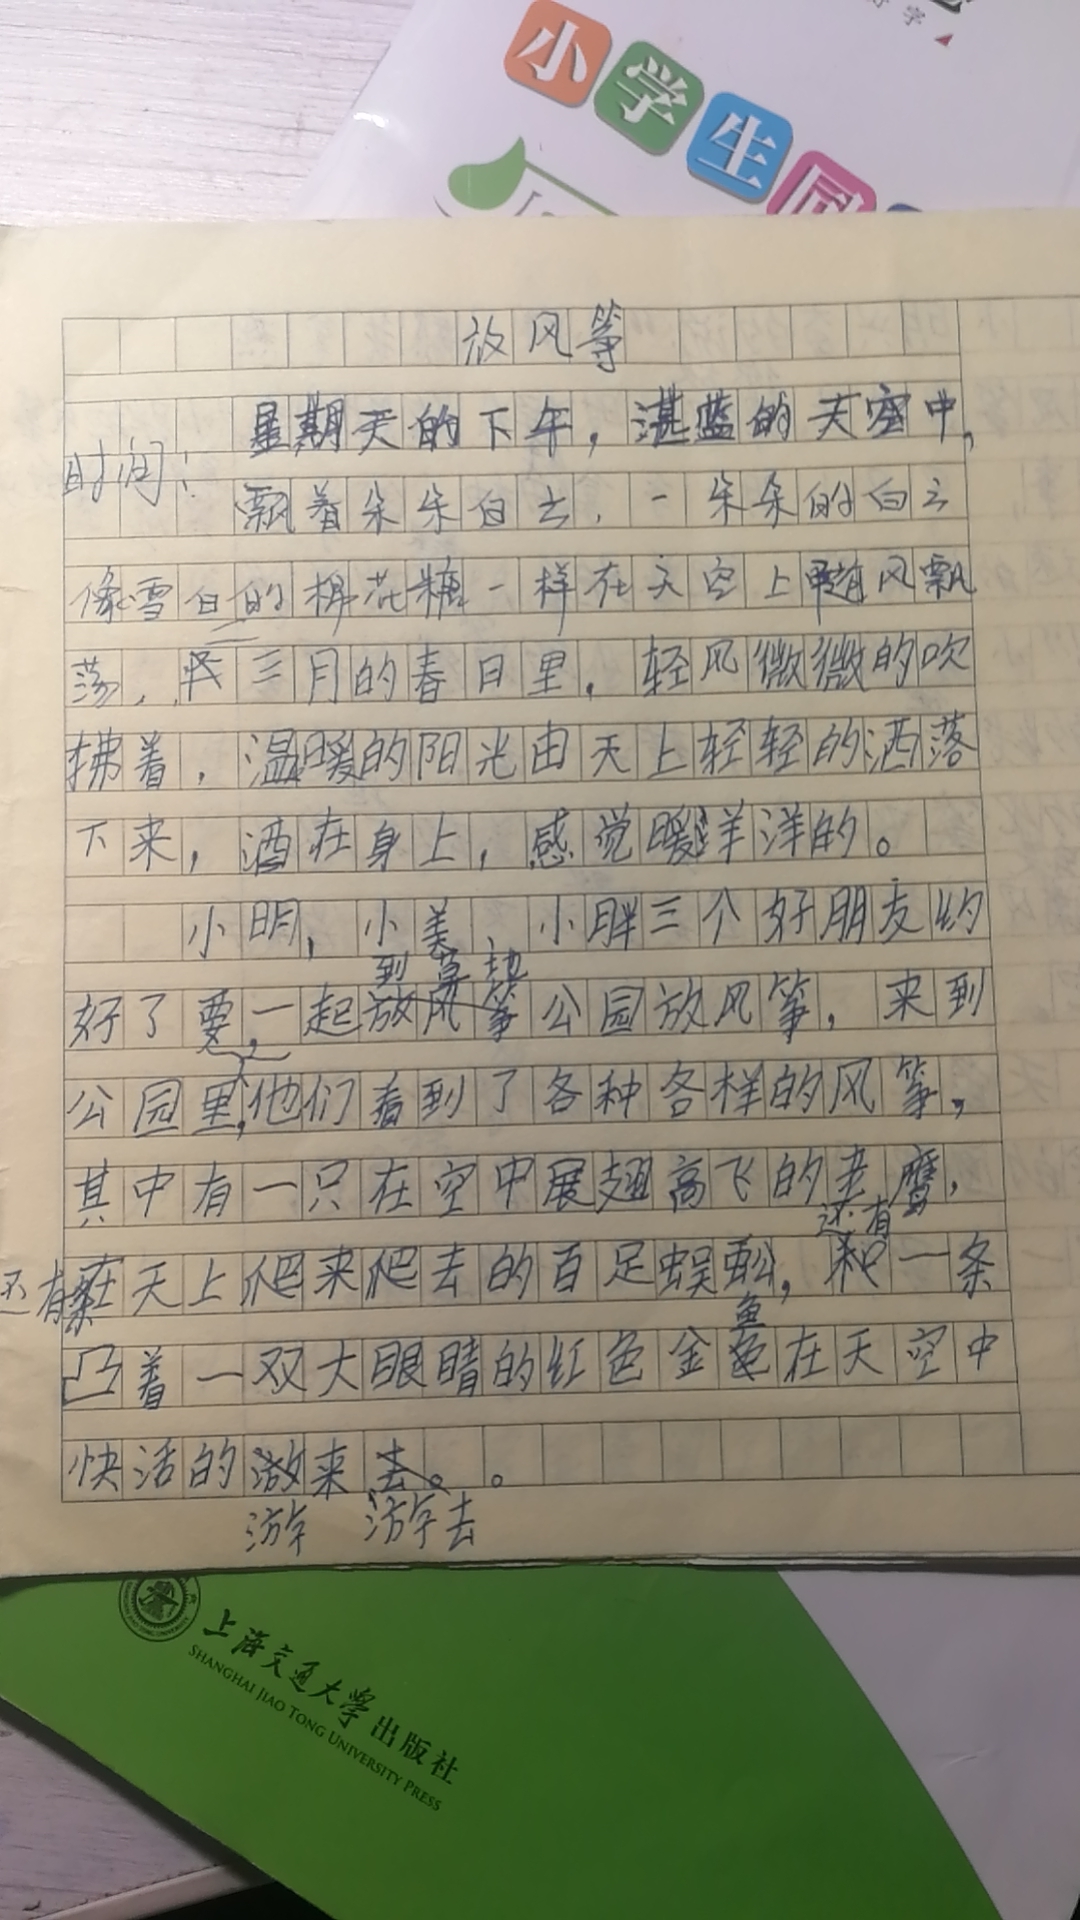 小学生同
放风筝
星期天的下午，湛蓝的天空中，
时间：
飘着朵朵白云，一朵朵的白云
像雪白的棉花糖一样在天空上随风飘
荡，在三月的春日里，轻风微微的吹
拂着，温暖的阳光由天上轻轻的洒落
下来，洒在身上，感觉暖洋洋的。
小明，小美、小胖三个好朋友约
到草地
好了要，一起放风筝公园放风筝，来到
公园里，他们看到了各种各样的风筝，
其中有一只在空中展翅高飞的老鹰，
还有
还有条在天上爬来爬去的百足蜈蚣，和一条
鱼
凸着一双大眼睛的红色金色在天空中
快活的来去。。
游 游去
上海交通大学出版社
SHANGHAI JIAO TONG UNIVERSITY PRESS